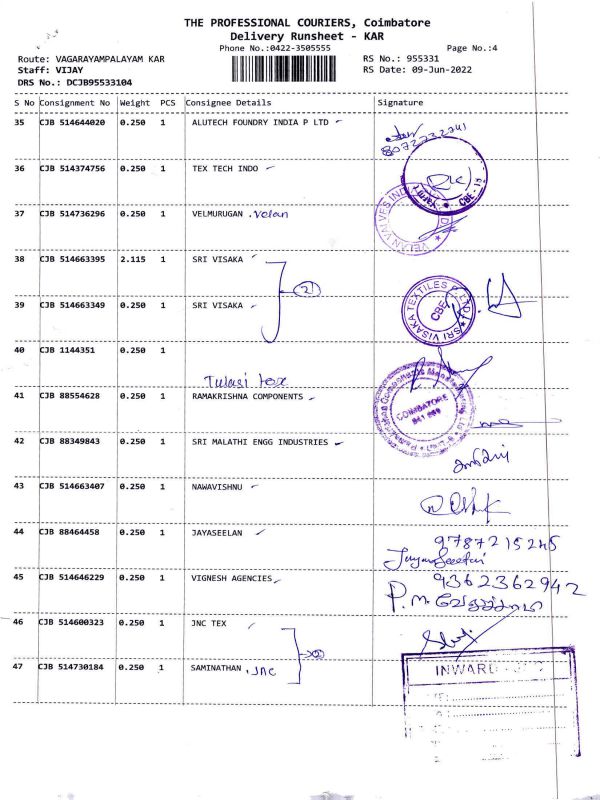 THE PROFESSIONAL COURIERS, Coimbatore
Delivery Runsheet - KAR
Phone No.:0422-3505555 Page No.:4
Route: VAGARAYAMPALAYAM KAR RS No.: 955331
Staff: VIJAY RS Date: 09-Jun-2022
DRS No.: DCJB95533104
S No Consignment No Weight PCS Consignee Details Signature
35 CJB 514644020 0.250 1 ALUTECH FOUNDRY INDIA P LTD
36 CJB 514374756 0.250 1 TEX TECH INDO
CBE
37 CJB 514736296 0.250 1 VELMURUGAN . Velan
VELAN VALVES
38 CJB 514663395 2.115 1 SRI VISAKA
2
39 CJB 514663349 0.250 1 SRI VISAKA
SRI VISAKA TEXTILES
CBE
40 CJB 1144351 0.250 1
Tulasi tex
41 CJB 88554628 0.250 1 RAMAKRISHNA COMPONENTS
COIMBATORE
42 CJB 88349843 0.250 1 SRI MALATHI ENGG INDUSTRIES
43 CJB 514663407 0.250 1 NAWAVISHNU
44 CJB 88464458 0.250 1 JAYASEELAN
9787215245
45 CJB 514646229 0.250 1 VIGNESH AGENCIES
9362362942
P.M.
46 CJB 514600323 0.250 1 JNC TEX
2
47 CJB 514730184 0.250 1 SAMINATHAN . JNC
INWARD